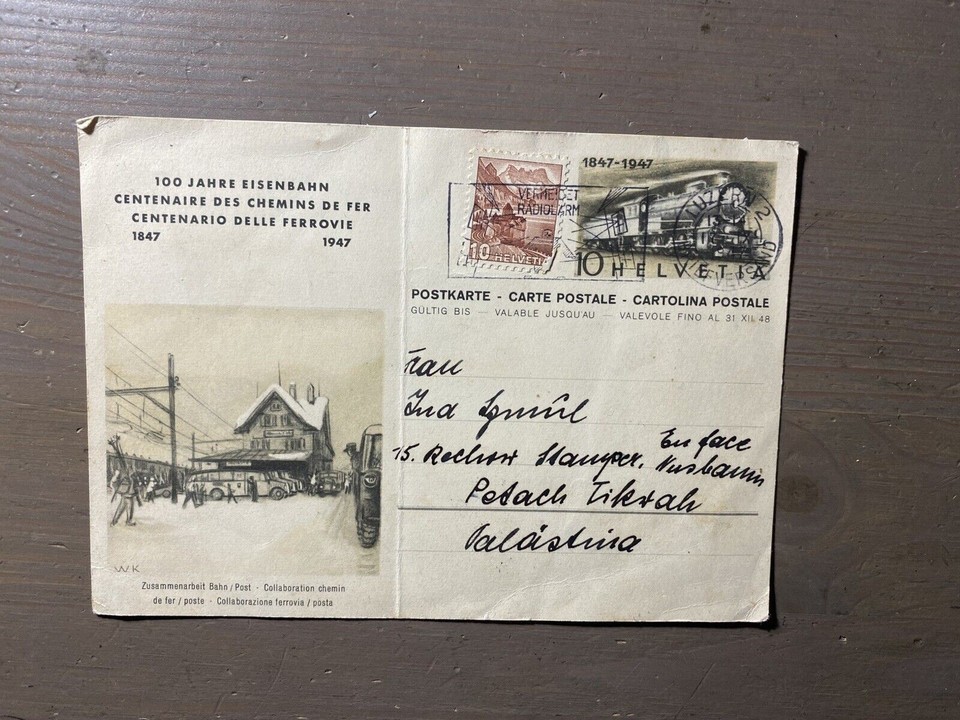 100 JAHRE EISENBAHN
CENTENAIRE DES CHEMINS DE FER
CENTENARIO DELLE FERROVIE
1847 1947
WK
Zusammenarbeit Bahn / Post · Collaboration chemin
de fer / poste · Collaborazione ferrovia / posta
1847-1947
VERMEIDET
RADIOLÄRM
10 HELVETIA
10 HELVETIA
LUZERN 2
VERSAND
POSTKARTE - CARTE POSTALE - CARTOLINA POSTALE
GÜLTIG BIS — VALABLE JUSQU'AU — VALEVOLE FINO AL 31 XII 48
Frau
15. Rechow Stamper.
En face
Nusbaum
Petach Tikwah
Palästina